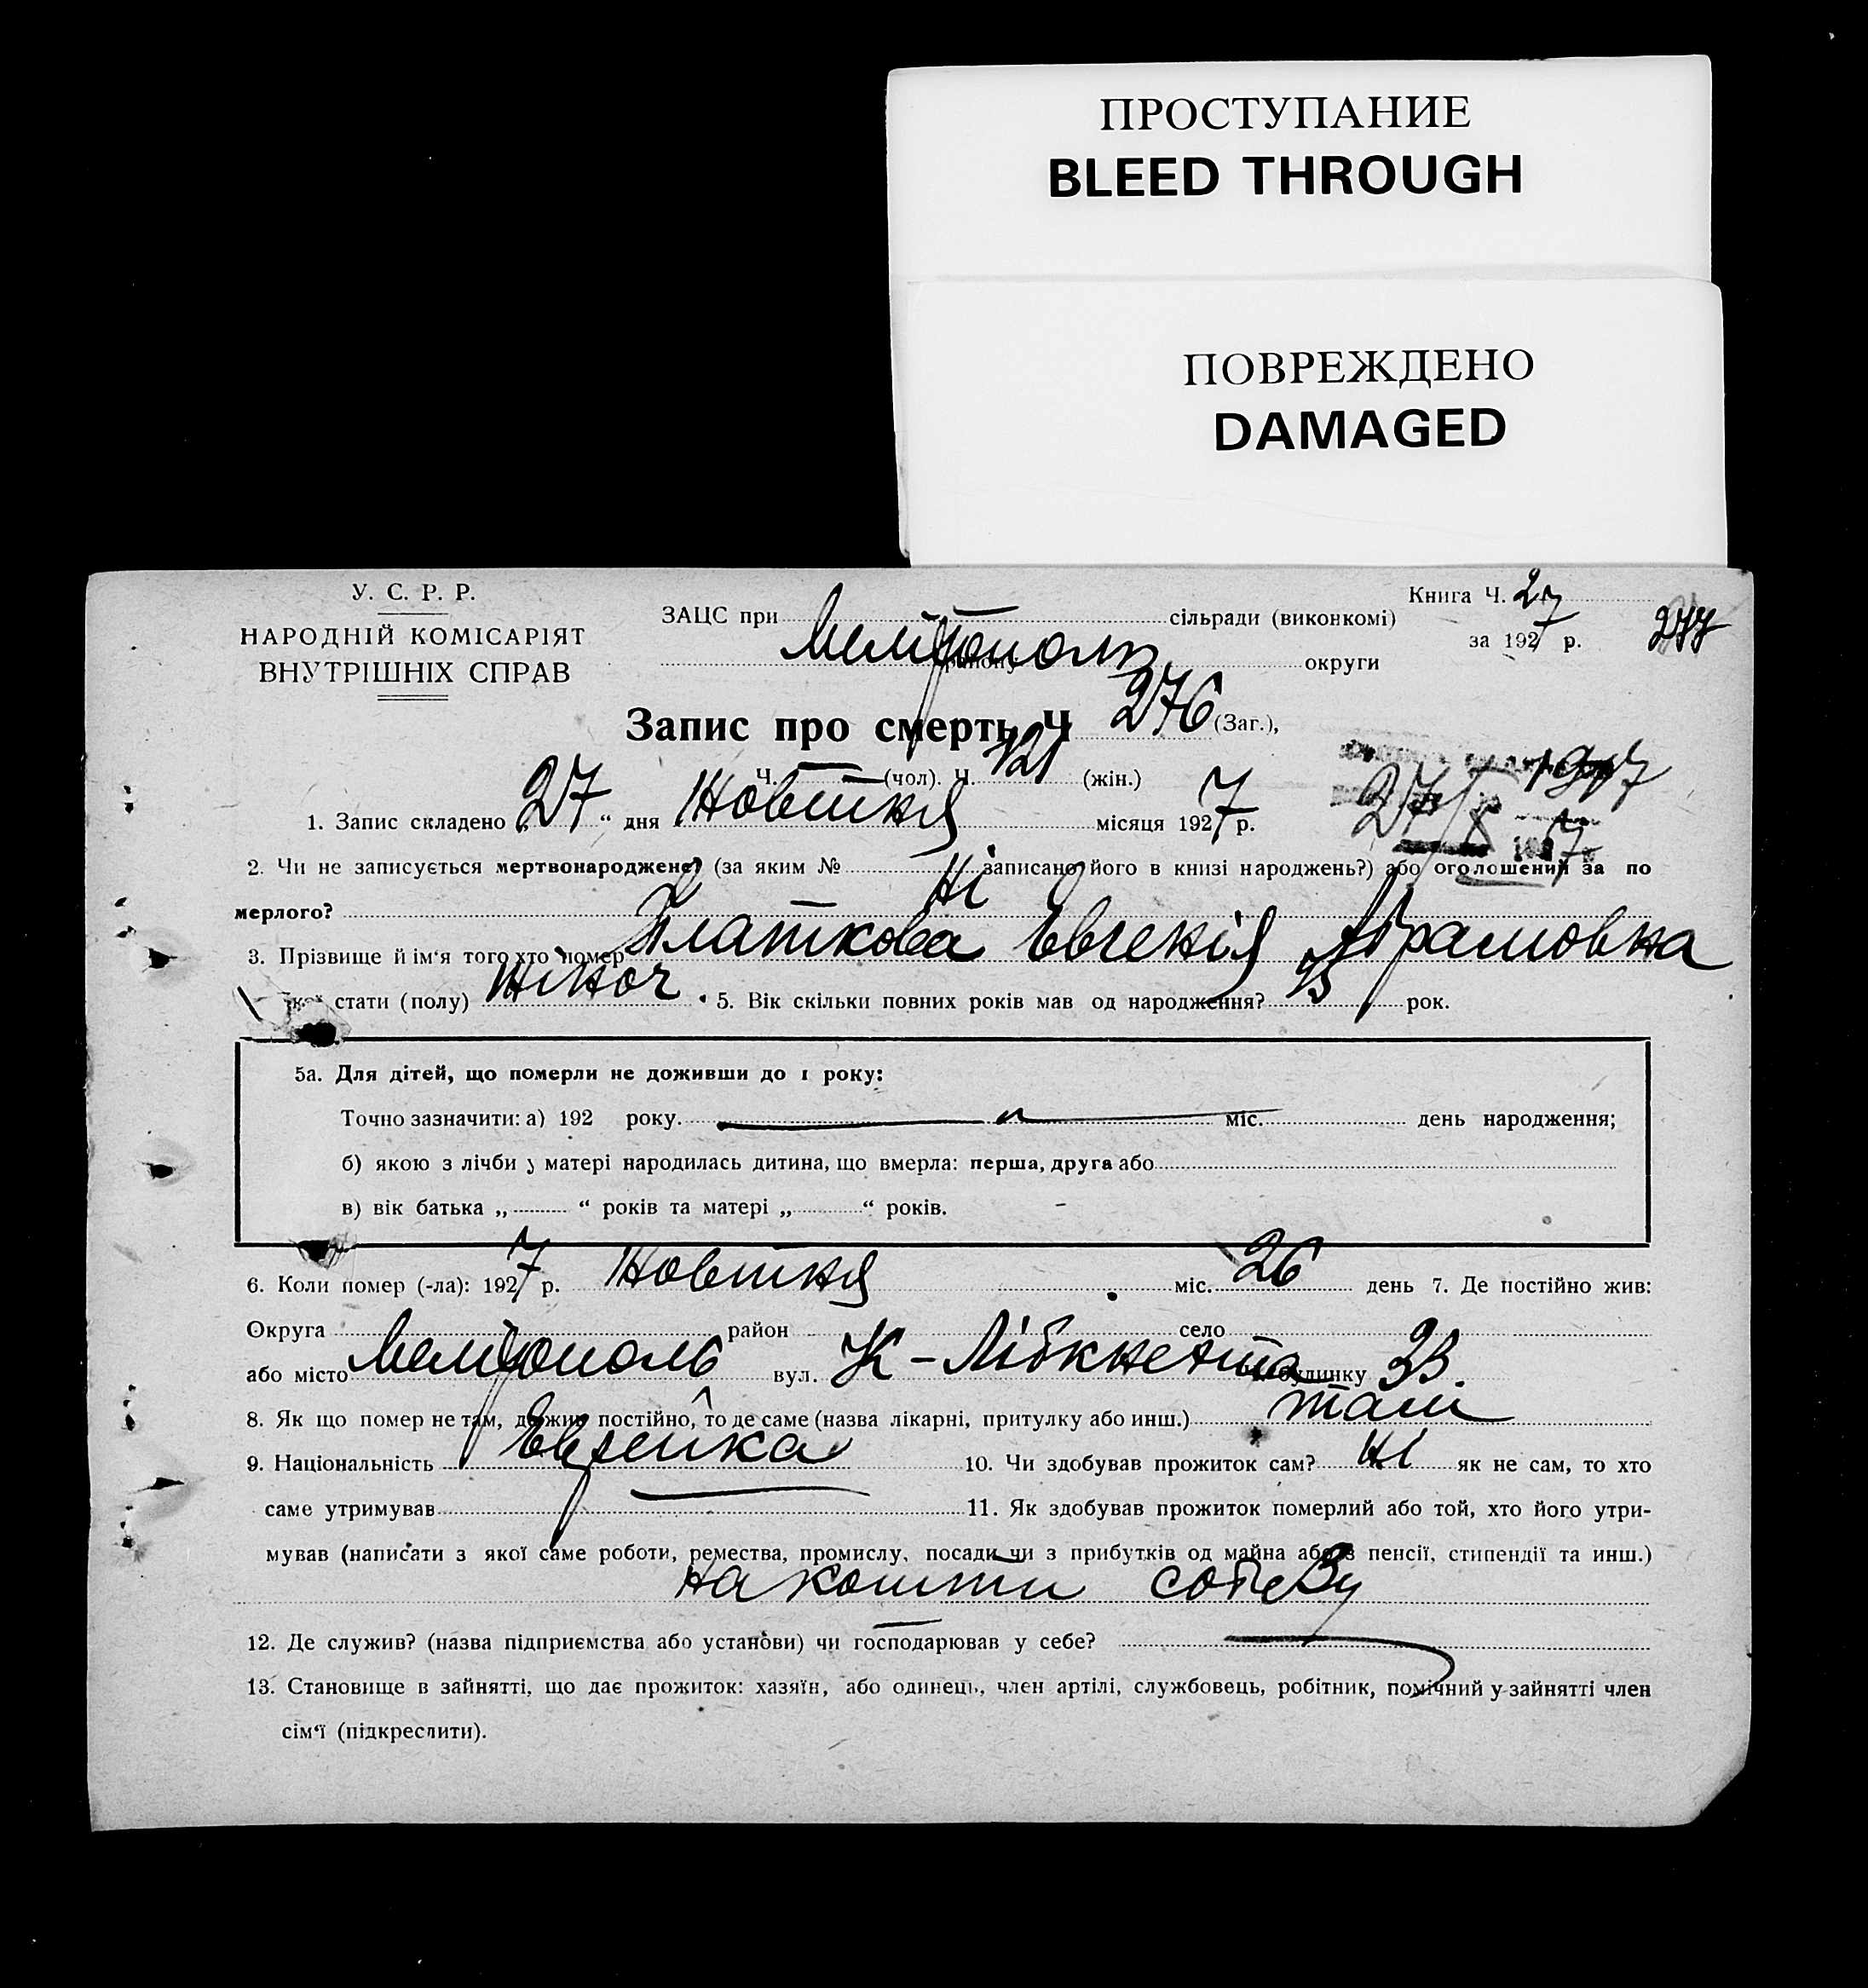 ПРОСТУПАНИЕ
BLEED THROUGH
ПОВРЕЖДЕНО
DAMAGED
У. С. Р. Р.
НАРОДНІЙ КОМІСАРІЯТ
ВНУТРІШНІХ СПРАВ
ЗАЦС при сільради (виконкомі)
Мелітополь
району округи
Книга Ч. 27
за 1927 р.
277
Запис про смерть Ч 276 (Заг.),
Ч. — (чол). Ч. 121 (жін.)
1. Запис складено „ 27 “ дня Жовтня місяця 1927 р.
27/X 1927
2. Чи не записується мертвонароджене? (за яким № записано його в книзі народжень?) або оголошений за по
мерлого? Ні
3. Прізвище й ім‘я того хто помер Платкова Евгенія Абрамовна
якої стати (полу) жіноч. 5. Вік скільки повних років мав од народження? рок.
5а. Для дітей, що померли не доживши до 1 року:
Точно зазначити: а) 192 року. міс. день народження;
б) якою з лічби у матері народилась дитина, що вмерла: перша, друга або
в) вік батька „ “ років та матері „ “ років.
6. Коли помер (-ла): 1927 р. Жовтня міс. 26 день 7. Де постійно жив:
Округа район село
або місто Мелітополь вул. К-Лібкнехта будинку 23.
8. Як що помер не там, де жив постійно, то де саме (назва лікарні, притулку або инш.) там
9. Національність Еврейка 10. Чи здобував прожиток сам? Ні як не сам, то хто
саме утримував 11. Як здобував прожиток померлий або той, хто його утри-
мував (написати з якої саме роботи, ремества, промислу, посади чи з прибутків од майна або з пенсії, стипендії та инш.)
на кошти собезу
12. Де служив? (назва підприємства або установи) чи господарював у себе?
13. Становище в зайнятті, що дає прожиток: хазяїн, або одинець, член артілі, службовець, робітник, помічний у зайнятті член
сім‘ї (підкреслити).